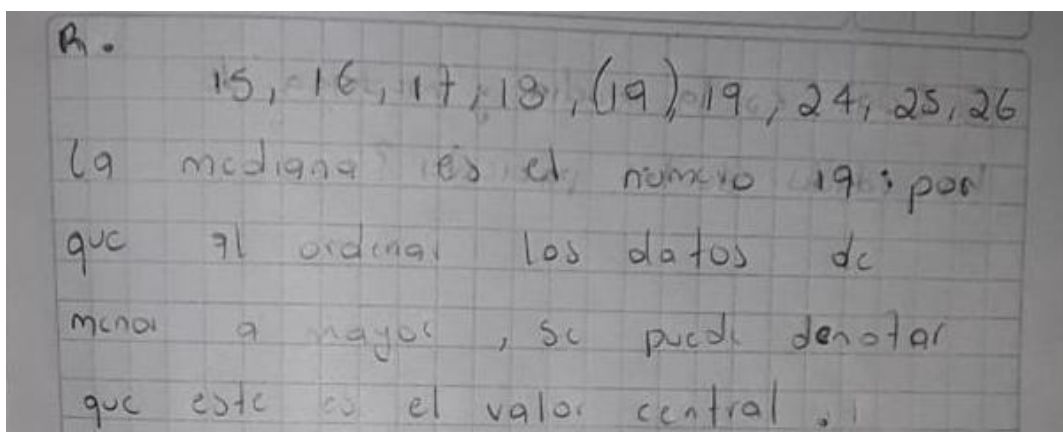 R.
15, 16, 17, 18, (19), 19, 24, 25, 26
la mediana es el numero 19; por
que al ordenar los datos de
menor a mayor, se puede denotar
que este es el valor central.